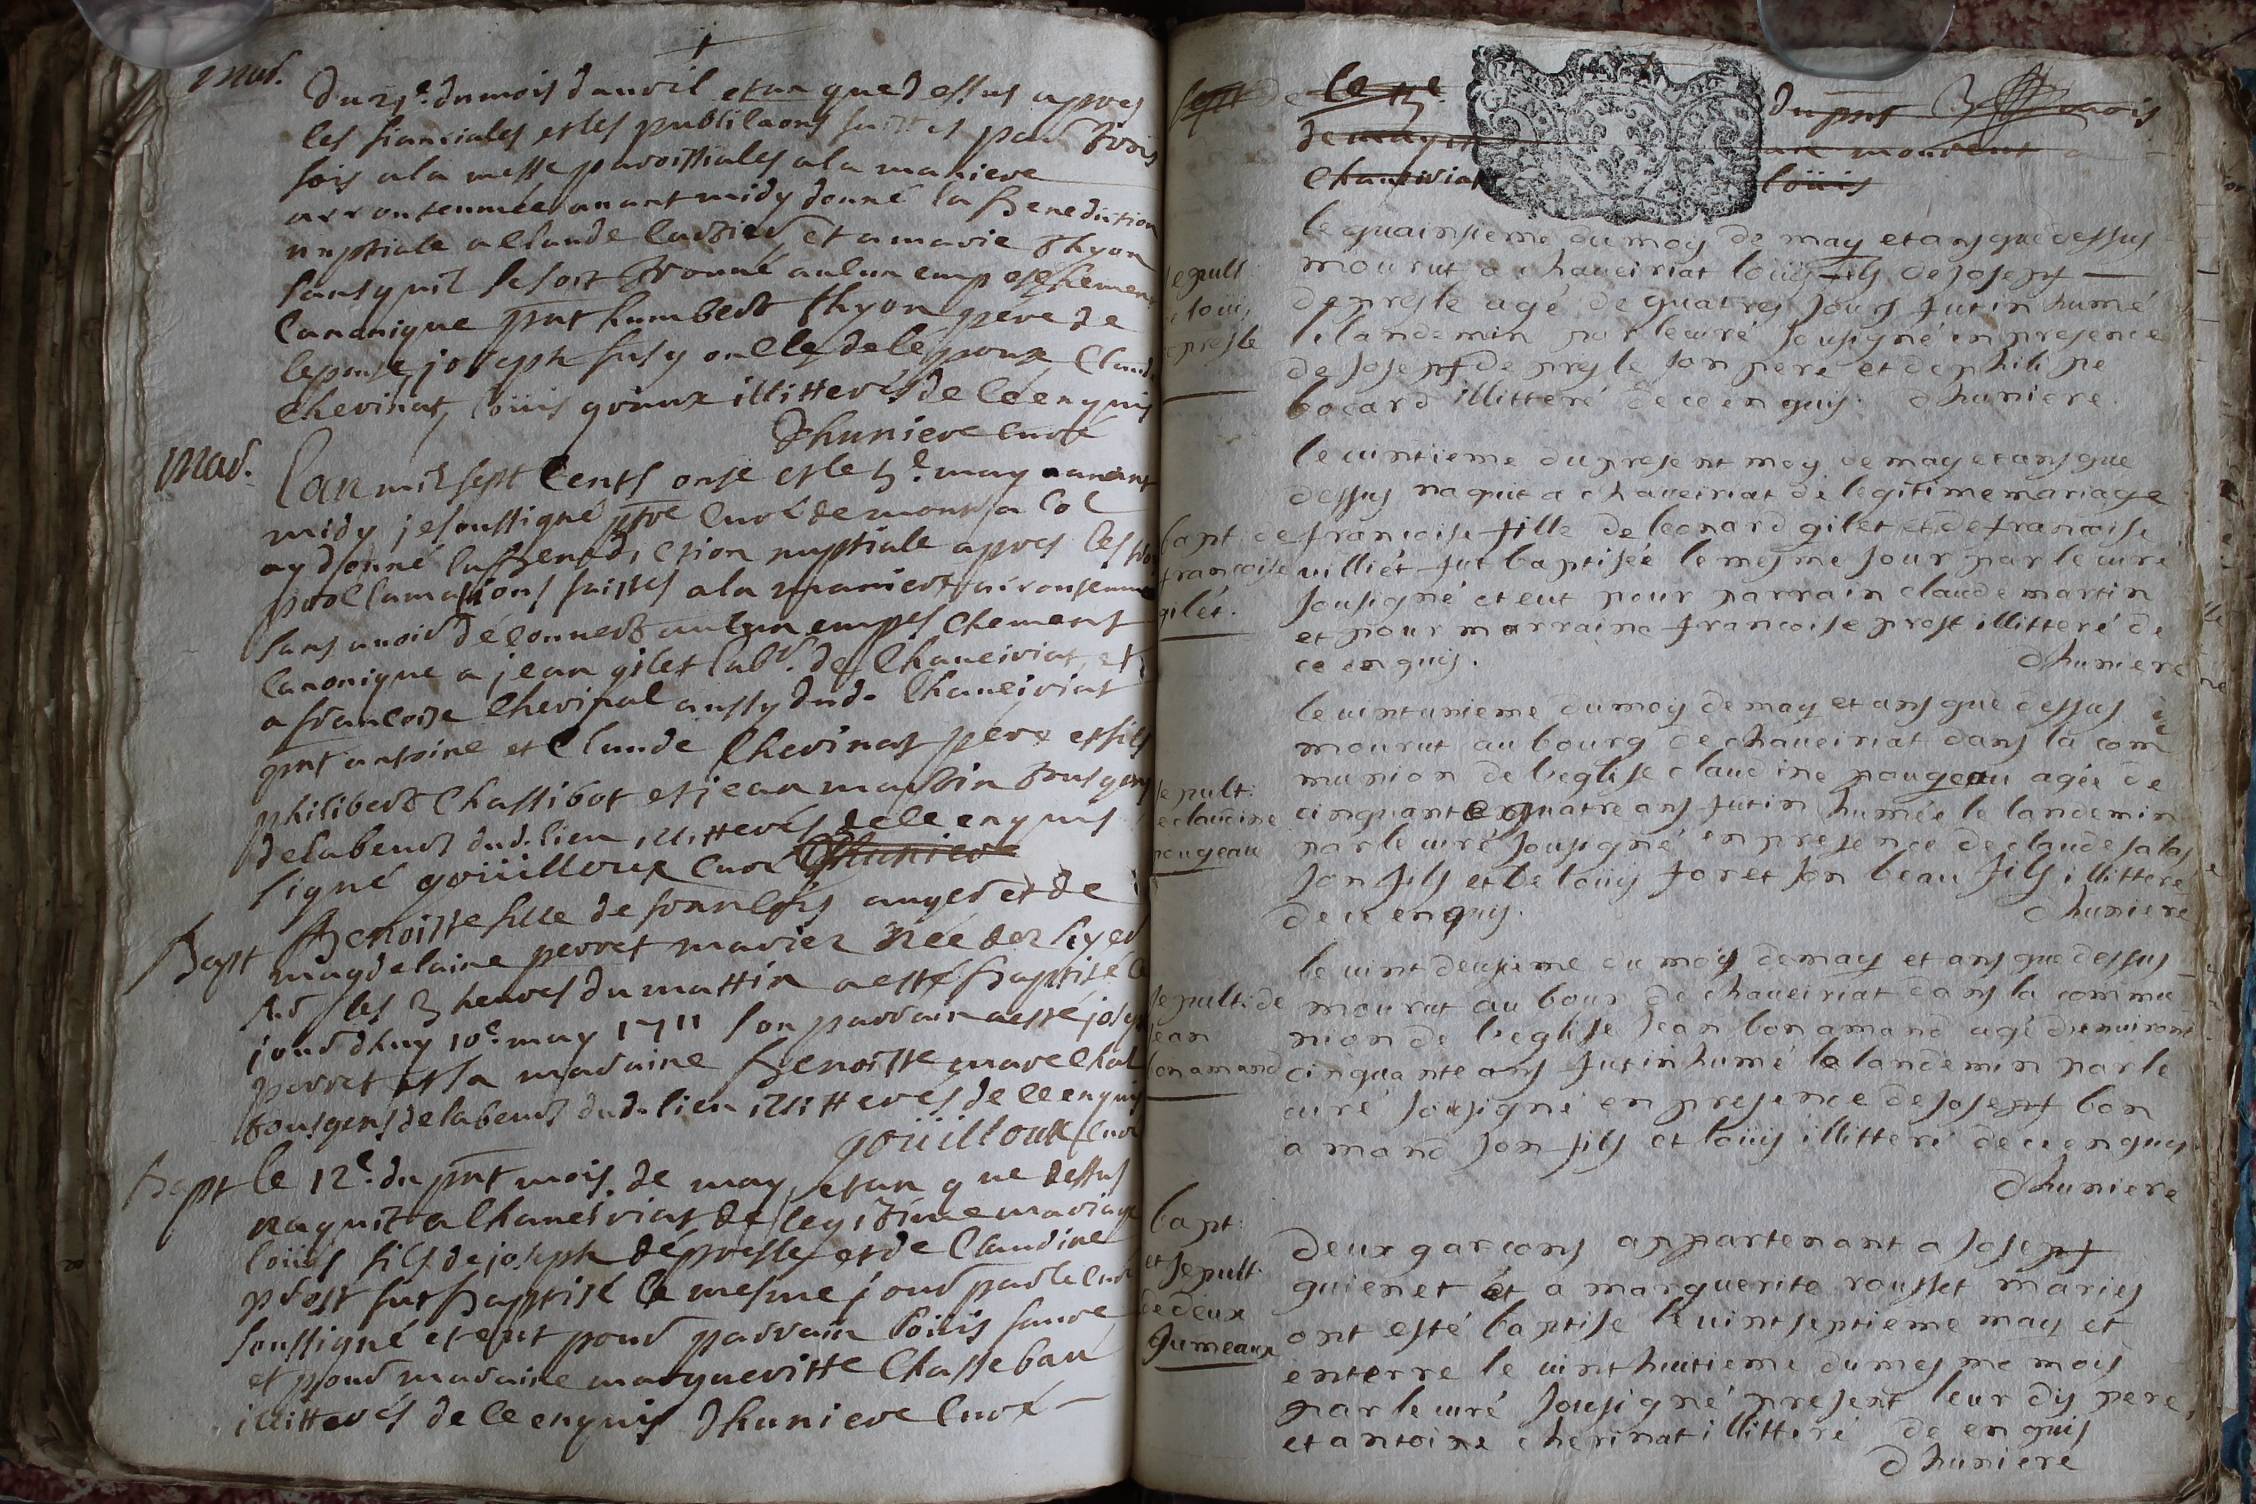 mar.
du 21e. du mois davril et an que dessus apres
les fiancailes et les publilaons faittes par trois
fois a la messe paroissiales a la maniere
accoutumée avant midy donné la benediction
nuptiale a Claude et a marie thyon
sans quil se soit trouué aulun empeschement
Canonique pnt humbert thyon pere de
lepouse joseph fusy de lepoux Claude
Chevinat, loüis illitterés de Ce enquis
Dhuniere curé
mar.
Lan mil sept Cents onse et le 5e. may auant
midy je soussigné ptre Curé de
ay donné la Benediction nuptiale apres les
proclamations faittes a la maniere accoutumée
sans auoir deCouuert aulun empeschement
Canonique a jean gilet labr. de Chaueiriat, et
a francoise Chevinat aussy dud. Chaueiriat
pnt antoine et Claude Chevinat pere et fils
philibert Chassibot et jean martin tous gens
de labeur dud. lieu illitterés de Ce enquis
signé goüilloux Curé Dhuniere
Bapt
Benoitte fille de auger et de
magdelaine perret mariez née der hyer
sur les 3 heures du mattin a esté baptisé Ce
jourdhuy 10e. may 1711 son parrain a esté joseph
perret et la maraine Benoitte marechal
tous gens de labeur dud. lieu illitterés de Ce enquis
goüilloux Curé
Bapt
le 12e. du pnt mois de may, et an que dessus
naquit a Chaueiriat de legitime mariage
loüis fils de joseph dépresle et de Claudine
prost fut baptisé le mesme jour par le Curé
soussigné et eut pour parrain loüis faure
et pour maraine margueritte Chassebau
illitterés de Ce enquis Dhuniere Curé
sept de le 15e du pnt mois
de may et an mourut a
Chaueiriat loüis
le quainsieme du moy de may et ans que dessus
mourut a chaueiriat loüis fils de Josepf
depresle agé de quatres Jours fut in humé
le landemin par le curé sousigné en presence
de Josepf de presle son pere et de phili pe
bocard illitteré de ce enquis. dhuniere.
sepult
loüis
presle
le vintieme du present moy de may et ans que
dessus naquit a chaueiriat de legitime mariage
francoise fille de leonard gilet et de francoise
villiét fut baptisée le mesme Jour par le curé
sousigné et eut pour parrain claude martin
et pour marraine francoise prost illitteré de
ce enquis.
dhuniere
bapt de
francoise
gilét.
le vintunieme du moy de may et ans que dessus
mourut au bourg de chaueiriat dans la com
munion de l'eglise claudine pougeau agée de
cinquante quatre ans fut in humée le landemin
par le curé sousigné en presence de claude salas
son fils et de loüis foret son beau fils illitteré
de ce enquis.
dhuniere
sepult:
de claudine
pougeau
le vint deusieme du mois de may et ans que dessus
mourut au bour de chaueiriat dans la commu
nion de l'eglise Jean bon amand agé d'enuirons
cinquante ans fut in humé le landemin par le
curé sousigné en presence de Josepf bon
amand son fils et loüis illitteré de ce enquis
dhuniere
sepult: de
Jean
bonamand
deux garcons appartenant a Josepf
guienet et a marguerite rousset mariés
ont esté baptise le vint septieme may et
enterre le vint huitieme du mesme mois
par le curé sousigné present leur dis pere,
et antoine cherinat illitteré de enquis
dhuniere
bapt:
et sepult
de deux
Jumeaux